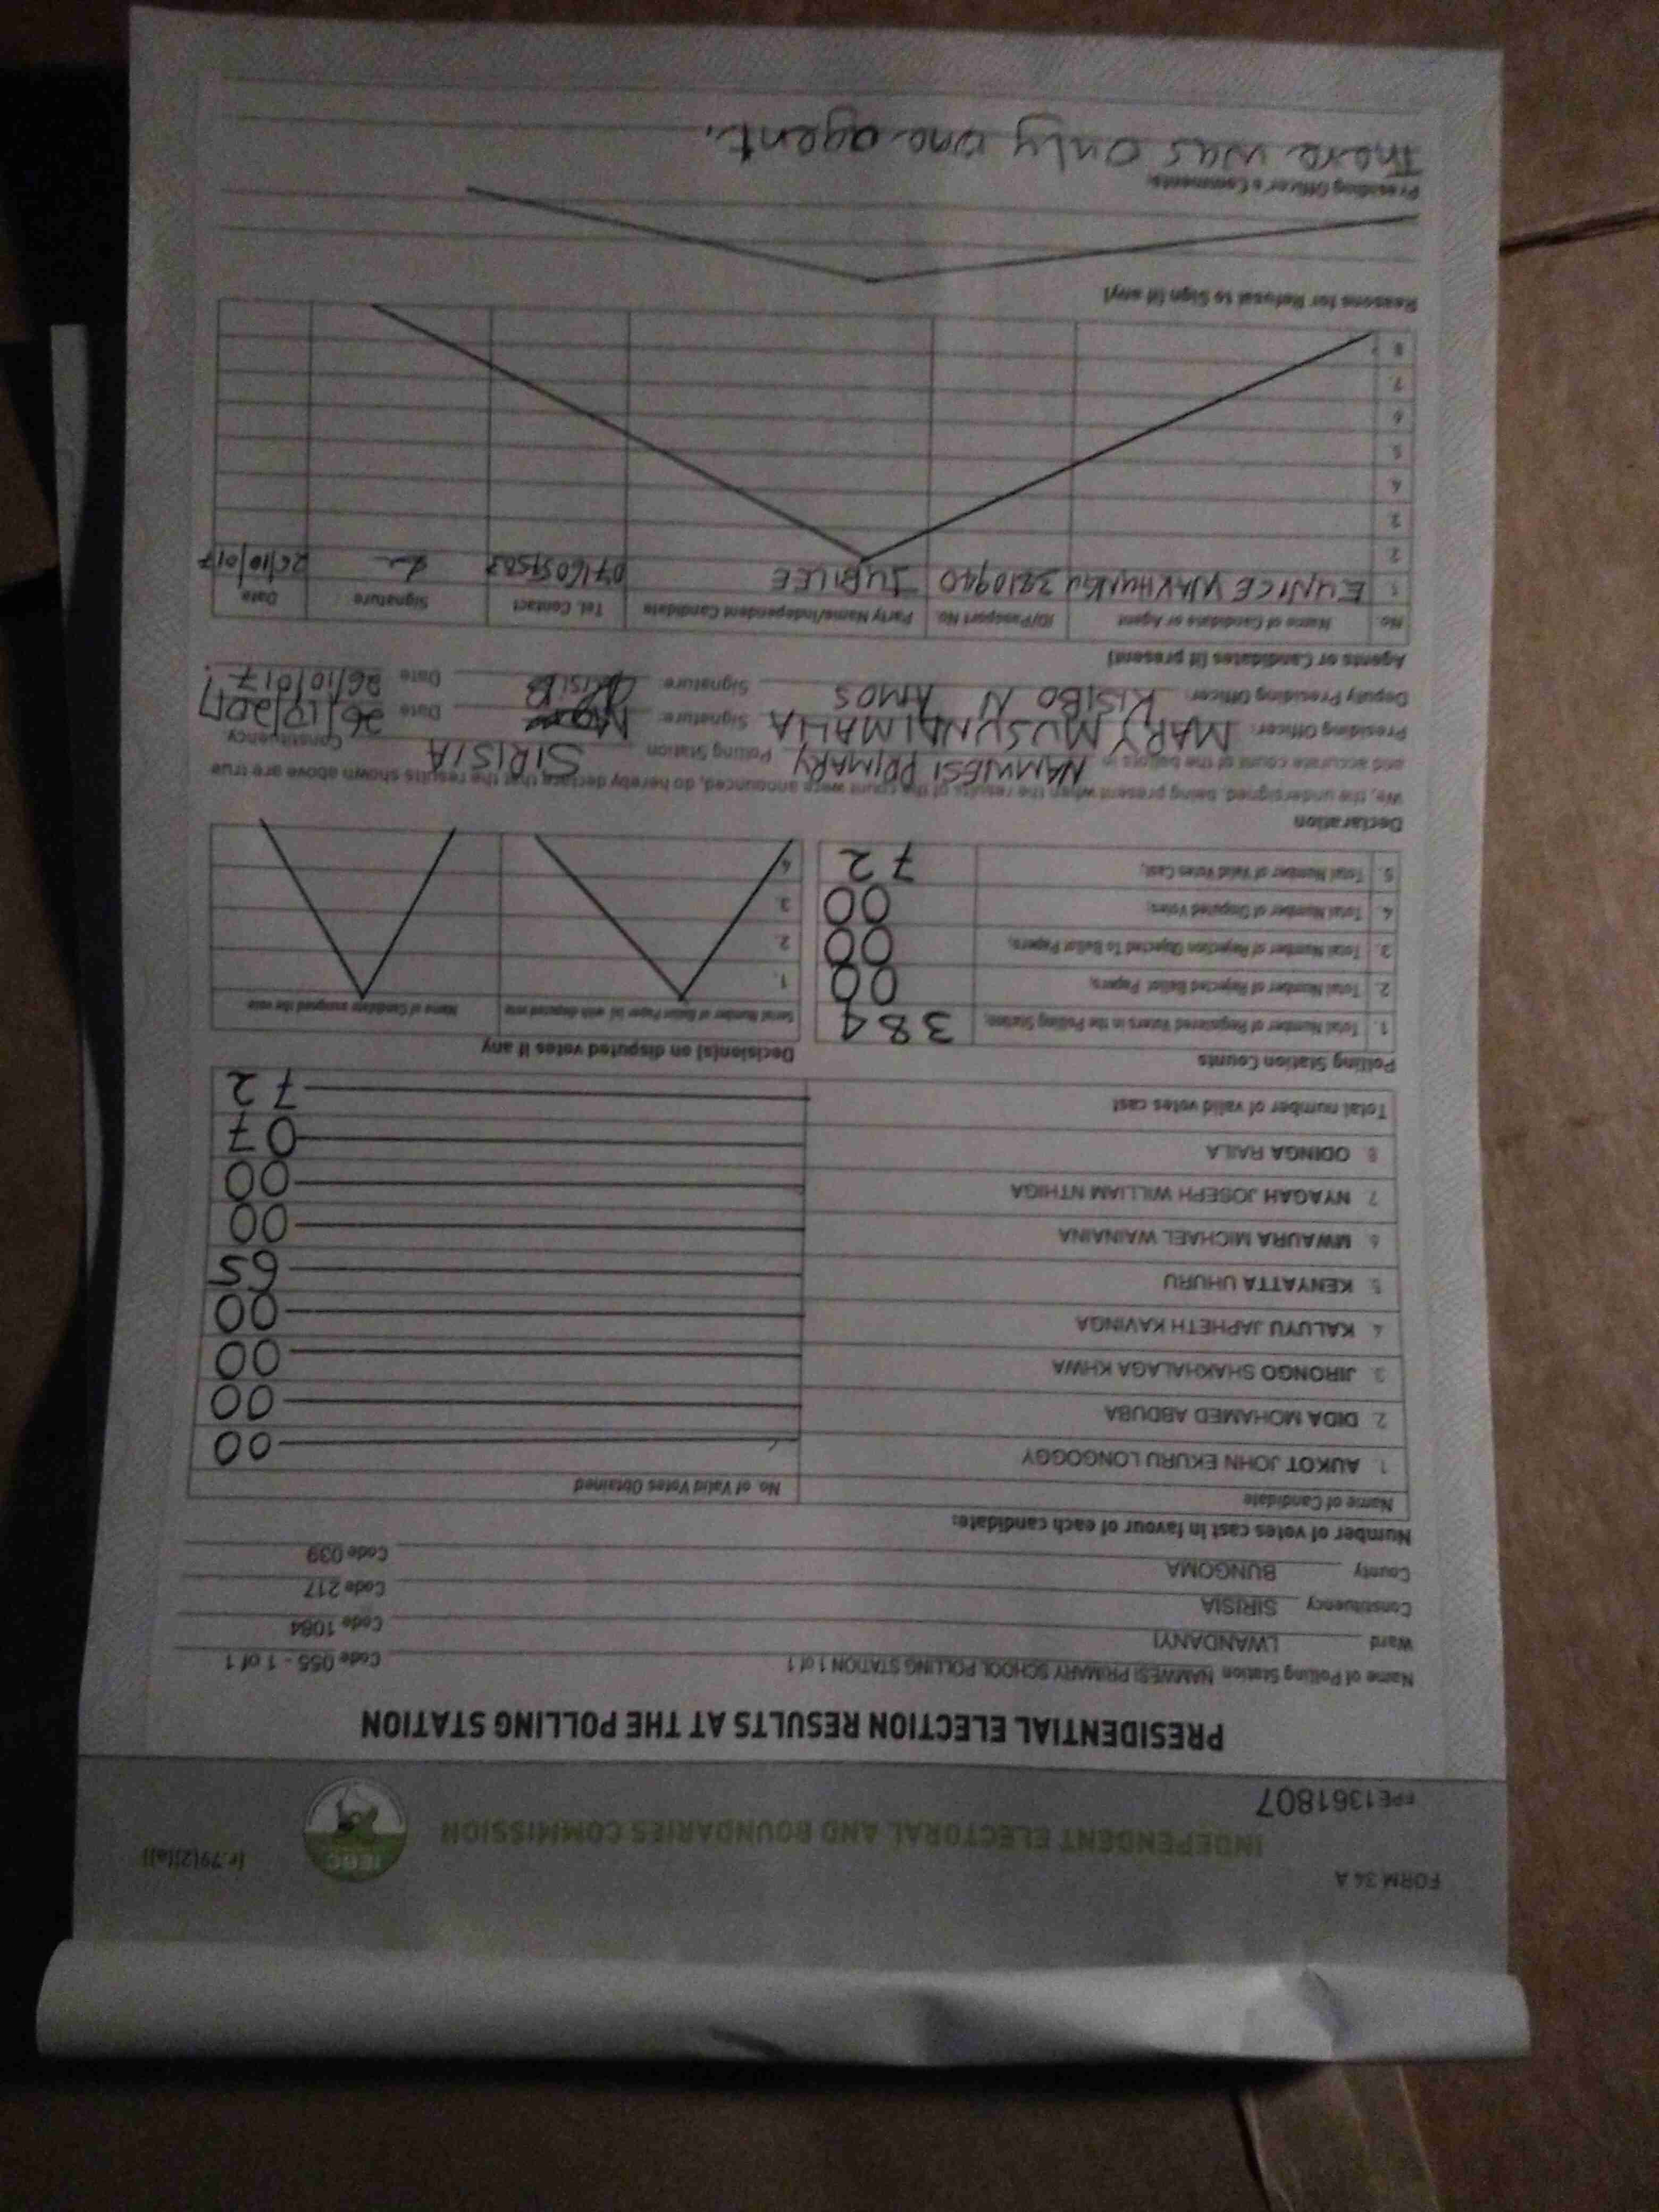 FORM 34 A
(r.79(2)(a))
INDEPENDENT ELECTORAL AND BOUNDARIES COMMISSION
IEBC
PRE1361807
PRESIDENTIAL ELECTION RESULTS AT THE POLLING STATION
Name of Polling Station NAMWESI PRIMARY SCHOOL POLLING STATION 1 of 1 Code 055 - 1 of 1
Ward LWANDANYI Code 1084
Constituency SIRISIA Code 217
County BUNGOMA Code 039
Number of votes cast in favour of each candidate:
Name of Candidate No. of Valid Votes Obtained
1. AUKOT JOHN EKURU LONGOGGY 00
2. DIDA MOHAMED ABDUBA 00
3. JIRONGO SHAKHALAGA KHWA 00
4. KALUYU JAPHETH KAVINGA 00
5. KENYATTA UHURU 65
6. MWAURA MICHAEL WAINAINA 00
7. NYAGAH JOSEPH WILLIAM NTHIGA 00
8. ODINGA RAILA 07
Total number of valid votes cast 72
Polling Station Counts
1. Total Number of Registered Voters in the Polling Station; 384
2. Total Number of Rejected Ballot Papers; 00
3. Total Number of Rejection Objected To Ballot Papers; 00
4. Total Number of Disputed Votes; 00
5. Total Number of Valid Votes Cast; 72
Decision(s) on disputed votes if any
Serial Number of Ballot Paper (s) with disputed vote Name of Candidate assigned the vote
1.
2.
3.
4.
Declaration
We, the undersigned, being present when the results of the count were announced, do hereby declare that the results shown above are true
and accurate count of the ballots in NAMWESI PRIMARY Polling Station SIRISIA Constituency.
Presiding Officer: MARY MUSUNDI MALIA Signature: Date 26/10/2017
Deputy Presiding Officer: KISIBO N AMOS Signature: Date 26/10/017
Agents or Candidates (if present)
No. Name of Candidate or Agent ID/Passport No. Party Name/Independent Candidate Tel. Contact Signature Date
1 EUNICE 3810940 JUBILEE 26/10/017
2
3
4
5
6
7
8
Reasons for Refusal to Sign (if any)
Presiding Officer's Comments:
There was only one agent.